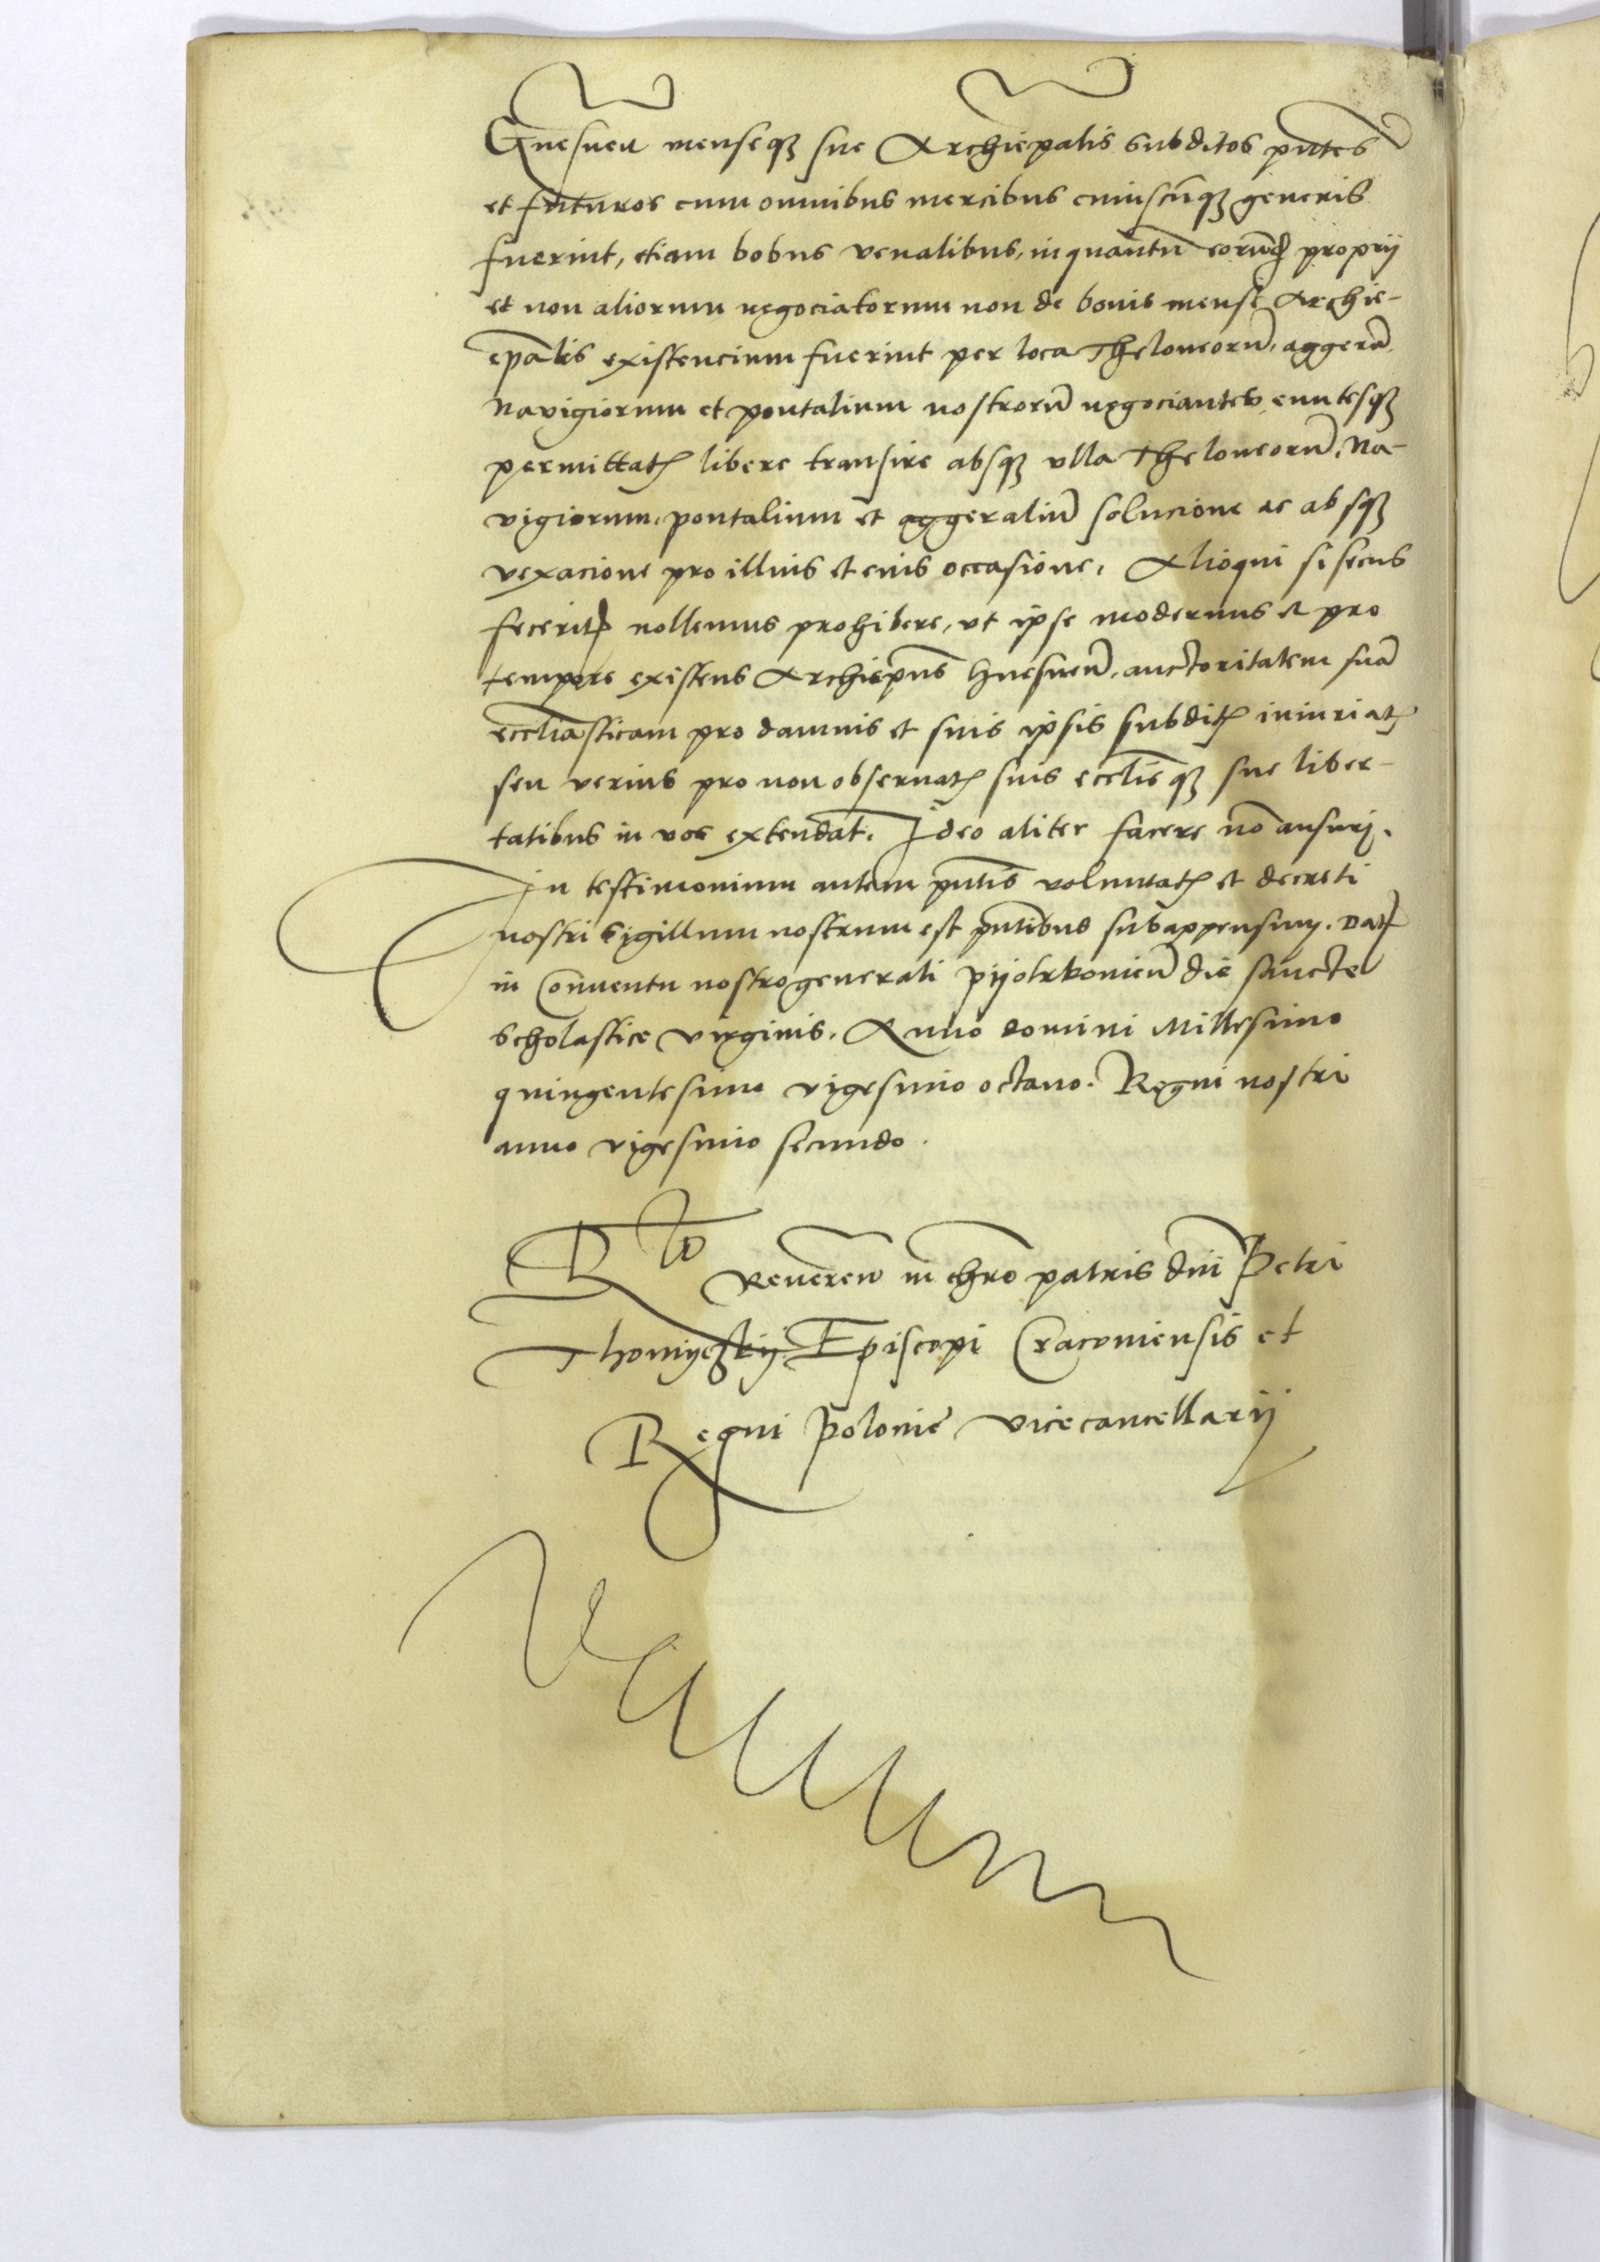 Gnesnen̄ menseqꝫ sue Archiepalis subditos pn̄tes
et futuros cum omnibus mercibus cuiuscūqꝫ generis
fuerint, etiam bobus venalibus, inquantū eorūd proprij
et non aliorum negociatorum non de bonis mense Archie-
ep̄alis existencium fuerint per loca Theloneorū, aggerū,
Navigiorum et pontalium nostrorū negociantes, euntesqꝫ
permittatꝭ libere transire absqꝫ vlla Theloneorū, Na-
vigiorum, pontalium et aggeraliū solucione ac absqꝫ
vexacione pro illius et eius occasione, Alioqui si secus
feceritꝭ nollemus prohibere, vt ipse modernus et pro
tempore existens Archiep̄us Gnesnen̄, auctoritatem suā
eccl̄iasticam pro damnis et suis ipsis subditꝭ iniuriatꝭ
seu verius pro non observatꝭ suis eccl̄ieqꝫ sue liber-
tatibus in vos extendat. Ideo aliter facere nō ausuri.
In testimonium autem pn̄tis voluntatꝭ et decreti
nostri Sigillum nostrum est pn̄tibus subappensum. Datꝭ
in Conventu nostro generali Pijotrkovien̄ die sancte
Scholastice virginis. Anno domini Millesimo
quingentesimo vigesimo octavo. Regni nostri
anno vigesimo secundo.
Rᵗᵒ
Reveren̄ in chr̄o patris dn̄i Petri
Thomijczkij Episcopi Cracoviensis et
Regni Polonie vicecancellarij